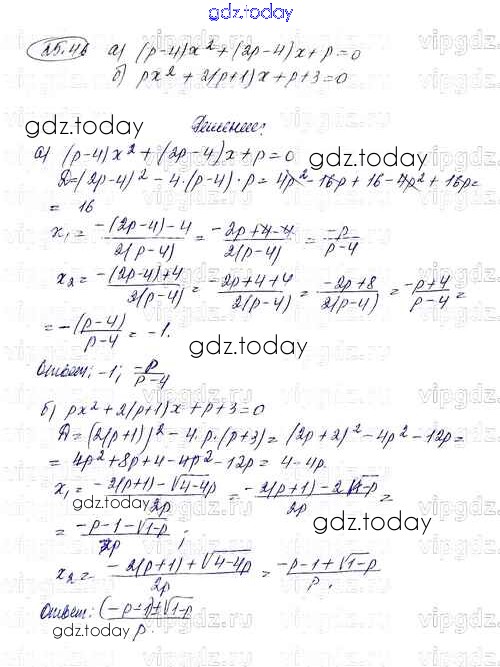 gdz.today
25.46 а) (p-4)x² + (2p-4)x + p = 0
б) px² + 2(p+1)x + p + 3 = 0
Решение:
gdz.today
а) (p-4)x² + (2p-4)x + p = 0
D = (2p-4)² - 4·(p-4)·p = 4p² - 16p + 16 - 4p² + 16p =
= 16
x₁ = -(2p-4)-4 / 2(p-4) = -2p+4-4 / 2(p-4) = -p / p-4
x₂ = -(2p-4)+4 / 2(p-4) = -2p+4+4 / 2(p-4) = -2p+8 / 2(p-4) = -p+4 / p-4 =
= -(p-4) / p-4 = -1.
gdz.today
Ответ: -1; -p / p-4
б) px² + 2(p+1)x + p + 3 = 0
D = (2(p+1))² - 4·p·(p+3) = (2p+2)² - 4p² - 12p =
= 4p² + 8p + 4 - 4p² - 12p = 4 - 4p.
gdz.today
x₁ = -2(p+1) - √4-4p / 2p = -2(p+1) - 2√1-p / 2p =
= -p-1-√1-p / p ;
gdz.today
x₂ = -2(p+1) + √4-4p / 2p = -p-1+√1-p / p .
Ответ: (-p-1)±√1-p / p.
gdz.today